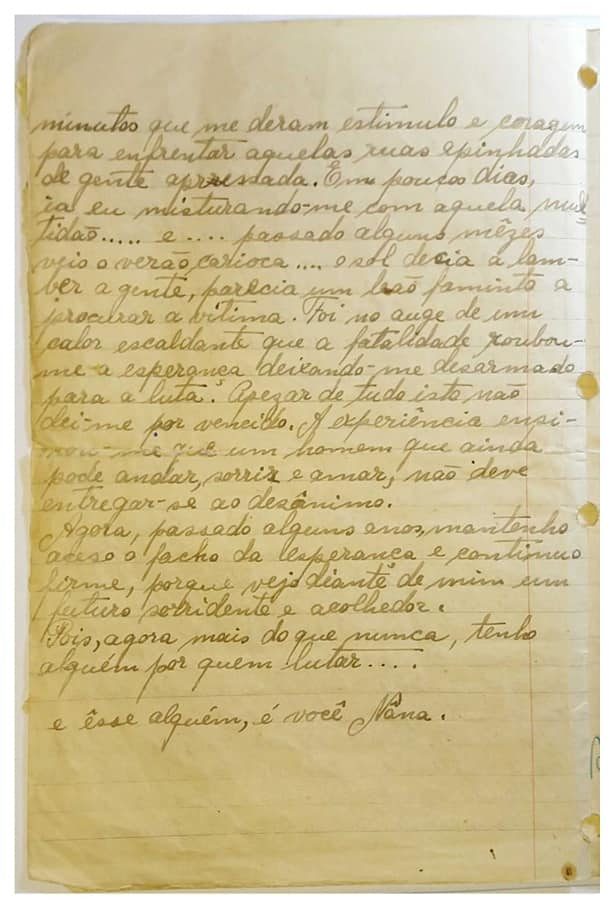 minutos que me deram estimulo e coragem
para enfrentar aquelas ruas apinhadas
de gente apressada. Em poucos dias,
ia eu misturando-me com aquela mul-
tidão..... e .... passado alguns mêzes
veio o verão carioca .... o sol decia a lam-
ber a gente, parecia um leão faminto a
procurar a vitima. Foi no auge de um
calor escaldante que a fatalidade roubou-
me a esperança deixando-me desarmado
para a luta. Apezar de tudo isto não
dei-me por vencido. A experiência ensi-
nou-me que um homem que ainda
pode andar, sorrir e amar, não deve
entregar-se ao desânimo.
Agora, passado alguns anos, mantenho
aceso o facho da esperança e continuo
firme, porque vejo diante de mim um
futuro sorridente e acolhedor.
Pois, agora mais do que nunca, tenho
alguém por quem lutar....
e êsse alguém, é você Nâna.